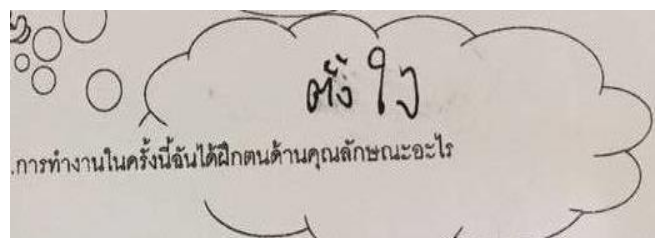 ตั้งใจ
.การทำงานในครั้งนี้ฉันได้ฝึกตนด้านคุณลักษณะอะไร